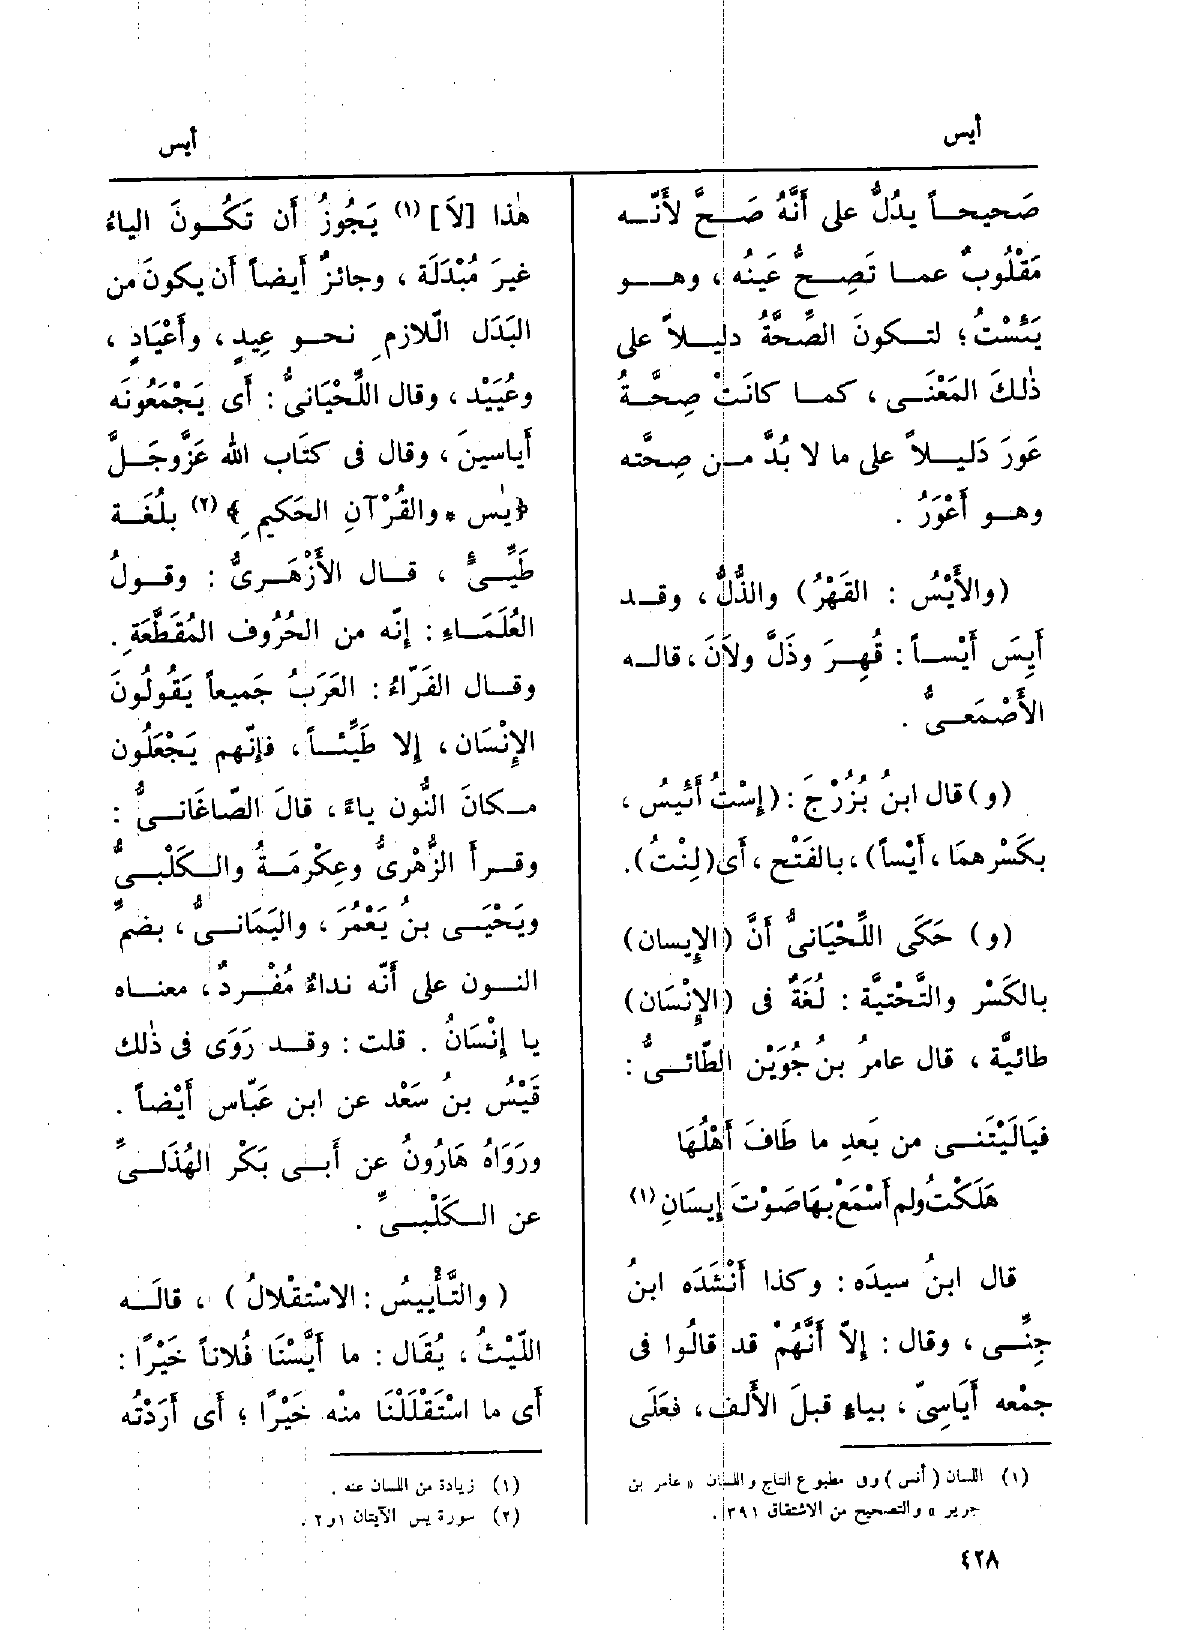 أيس
أيس
صَحيحاً يدُلُّ على أَنَّهُ صَحَّ لأَنَّه
مَقْلُوبٌ عما تَصِحُّ عَينُه ، وهو
يَئسْتُ ؛ لتكونَ الصِّحَّةُ دليلاً على
ذٰلكَ المَعْنَى ، كما كانَتْ صِحَّةُ
عَورَ دَليلاً على ما لا بُدَّ من صِحَّته
وهو أَعْوَرُ .
(والأَيْسُ : القَهْرُ) والذُّلُّ ، وقد
أَيِسَ أَيْساً : قُهِرَ وذَلَّ ولاَنَ ، قاله
الأَصْمَعىُّ .
(و) قال ابنُ بُزُرْجَ : (إِسْتُ أَئيسُ ،
بكَسْرهمَا ، أَيْساً) ، بالفَتْح ، أَى (لِنْتُ) .
(و) حَكَى اللِّحْيَانىُّ أَنَّ (الإِيسان)
بالكَسْر والتَّحْتيَّة : لُغَةٌ فى (الإِنْسَان)
طائيَّة ، قال عامرُ بنُ جُوَيْن الطّائىُّ :
فيَالَيْتَنى من بَعدِ ما طَافَ أَهْلُهَا
هَلَكْتُ ولم أَسْمَعْ بهَا صَوْتَ إِيسَانِ (١)
قال ابنُ سيدَه : وكذا أَنْشَدَه ابنُ
جِنِّى ، وقال : إِلاّ أَنَّهُمْ قد قالُوا فى
جمْعه أَيَاسِىّ ، بياءٍ قبلَ الأَلف ، فعَلَى
(١) اللسان (أنس) وفى مطبوع التاج واللسان « عامر بن
جرير » والتصحيح من الاشتقاق ٣٩١ .
هٰذا [لاَ] (١) يَجُوزُ أَن تَكُونَ الياءُ
غيرَ مُبْدَلَة ، وجائزٌ أَيضاً أَن يكونَ من
البَدَل اللّازمِ نحو عِيدٍ ، وأَعْيَادٍ ،
وعُيَيْد ، وقال اللِّحْيَانىُّ : أَى يَجْمَعُونَه
أَياسينَ ، وقال فى كتَاب الله عَزَّوجَلَّ
﴿يٰس ٭ والقُرْآنِ الحَكيمِ﴾ (٢) بلُغَة
طَيِّىءٍ ، قال الأَزْهَرىُّ : وقولُ
العُلَمَاءِ : إنّه من الحُرُوف المُقَطَّعَةِ .
وقال الفَرّاءُ : العَرَبُ جَميعاً يَقُولُونَ
الإِنْسَان ، إلا طَيِّئاً ، فإنّهم يَجْعَلُون
مكانَ النُّون ياءً ، قالَ الصّاغَانىُّ :
وقرأَ الزُّهْرىُّ وعِكْرمَةُ والكَلْبىُّ
ويَحْيَى بنُ يَعْمُرَ ، واليَمَانىُّ ، بضمِّ
النون على أَنّه نداءٌ مُفْردٌ ، معناه
يا إنْسَانُ . قلت : وقد رَوَى فى ذٰلك
قَيْسُ بنُ سَعْد عن ابن عَبّاس أَيْضاً .
ورَوَاهُ هَارُونُ عن أَبى بَكْر الهُذَلىِّ
عن الكَلْبىِّ .
(والتَّأْييسُ : الاسْتقْلالُ) ، قالَه
اللَّيْثُ ، يُقَال : ما أَيَّسْنَا فُلاناً خَيْرًا :
أَى ما اسْتَقْلَلْنَا منْه خَيْرًا ؛ أَى أَرَدْتُه
(١) زيادة من اللسان عنه .
(٢) سورة يس الآيتان ١و٢ .
٤٢٨